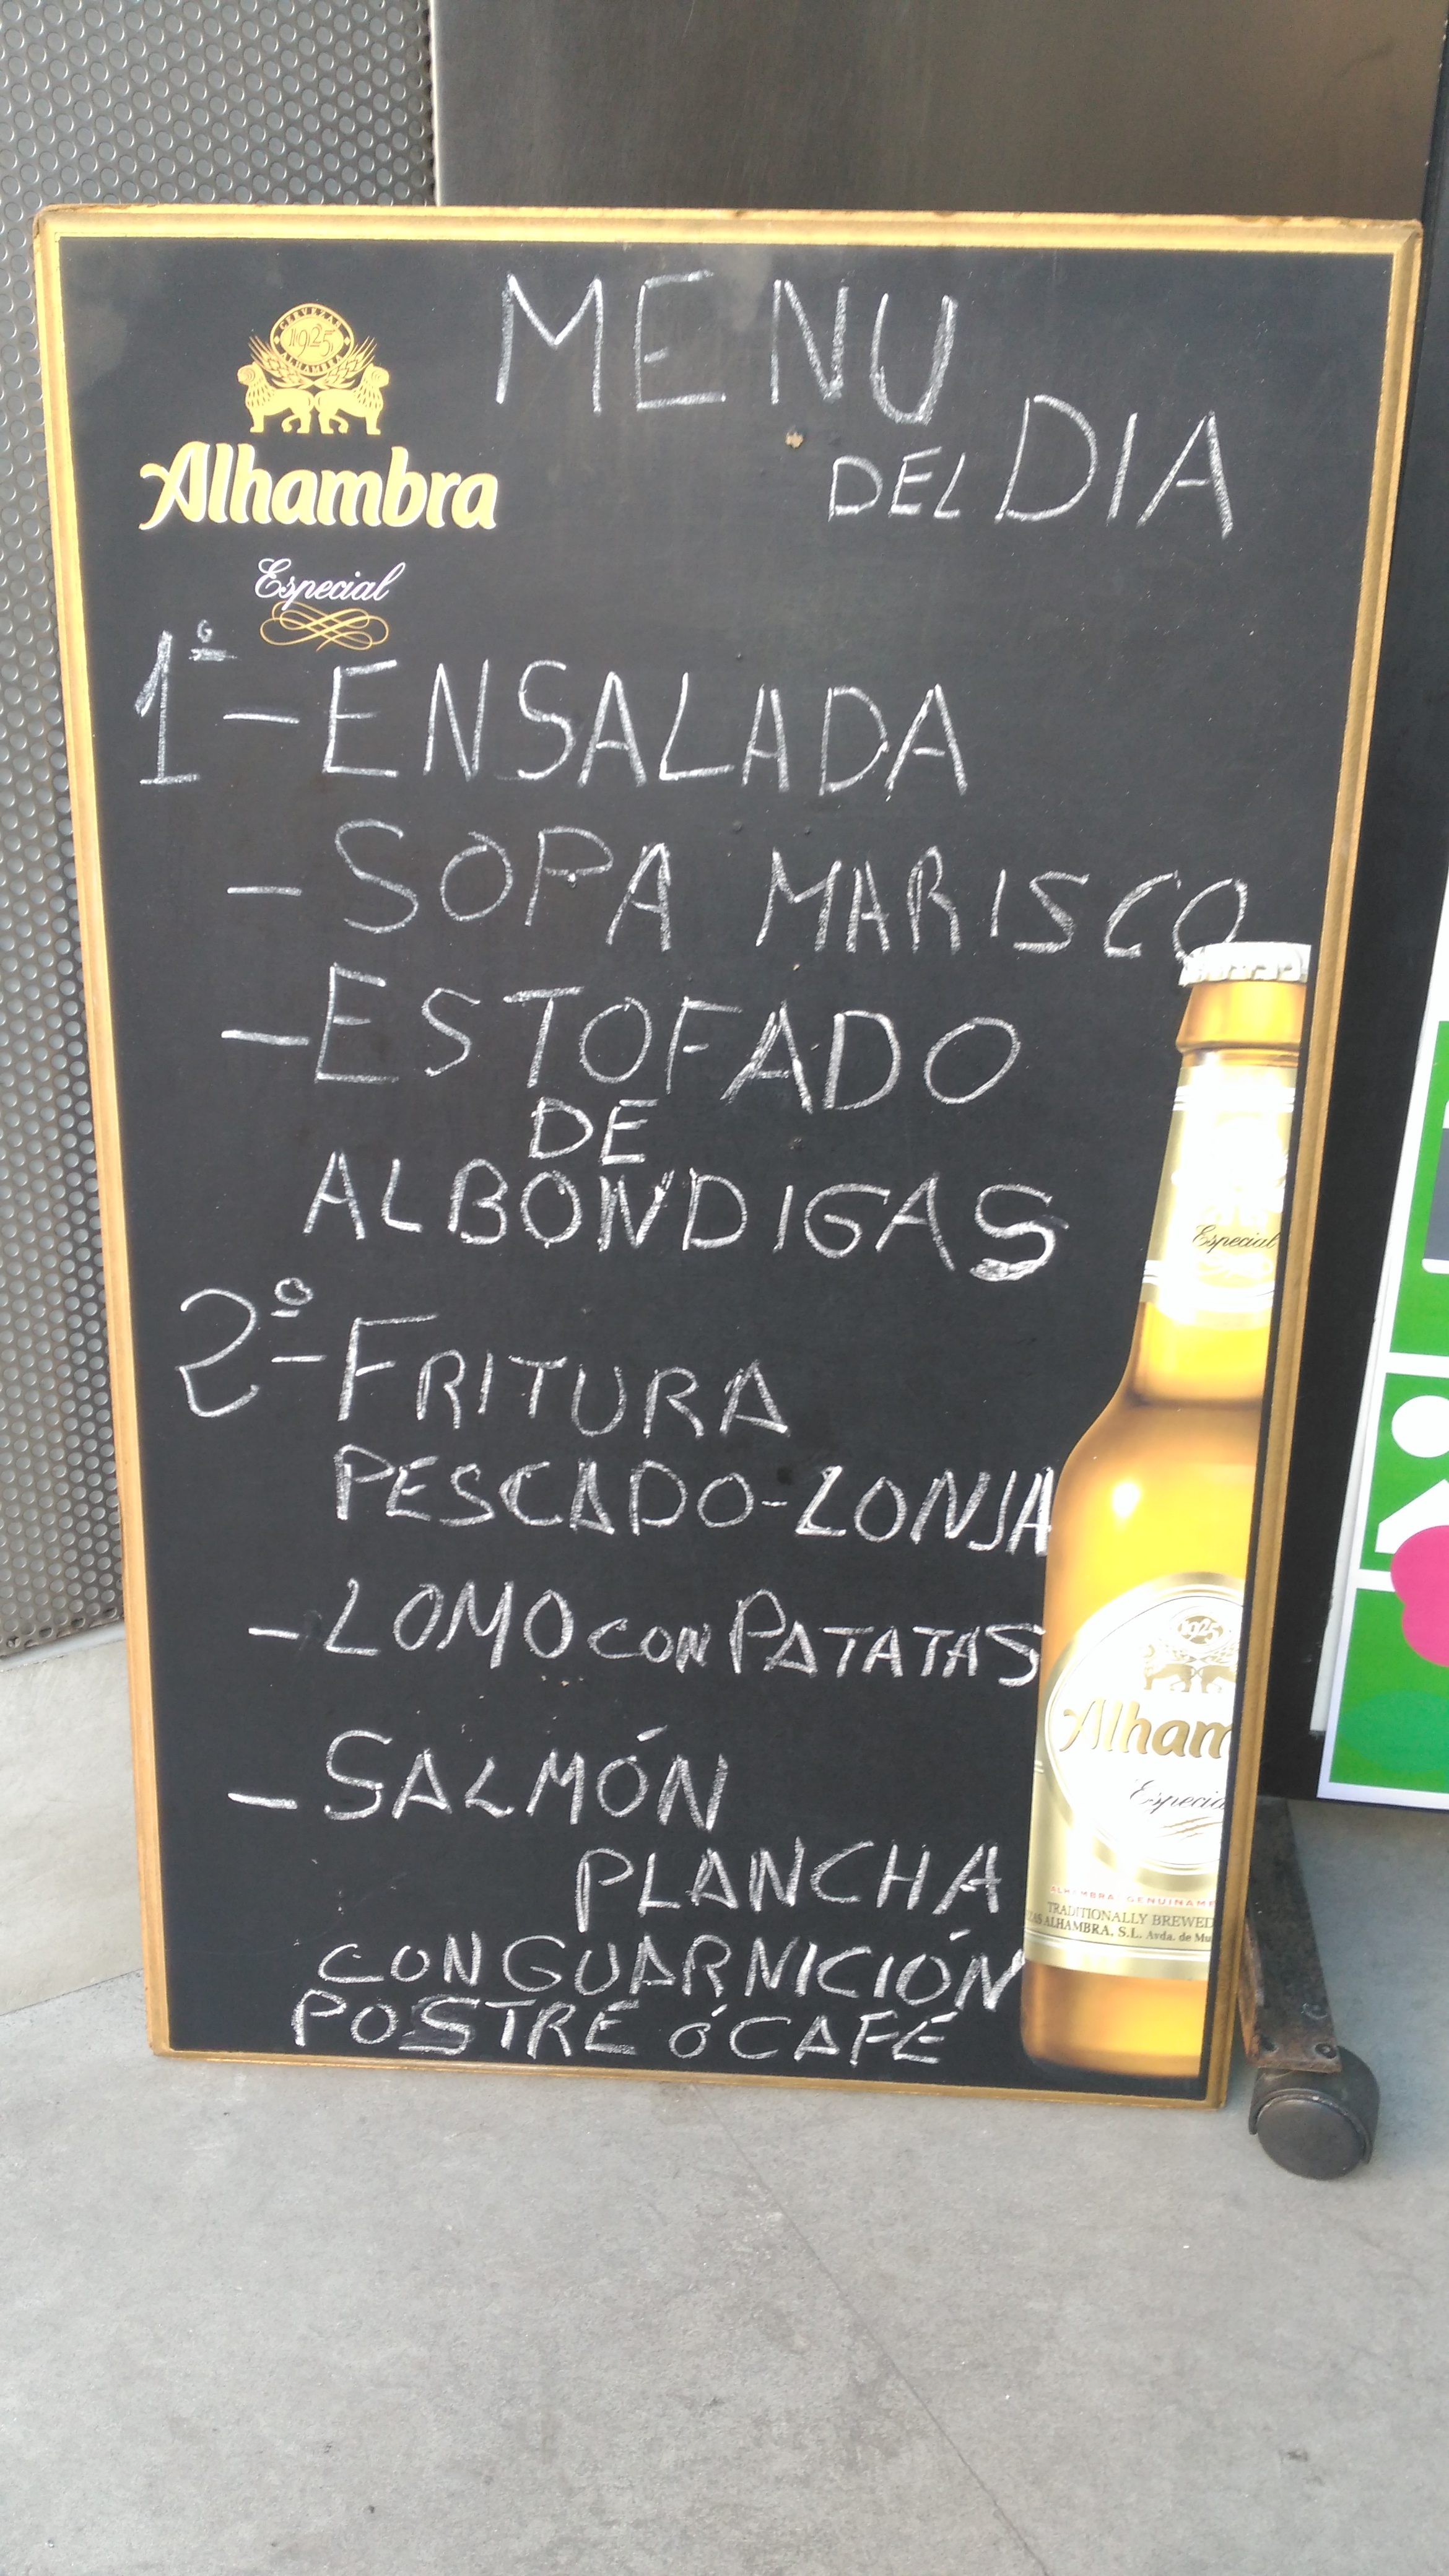 CERVEZAS
1925
ALHAMBRA
Alhambra
Especial
MENU
DEL DIA
1º - ENSALADA
- SOPA MARISCO
- ESTOFADO
DE
ALBONDIGAS
2º - FRITURA
PESCADO-LONJA
- LOMO CON PATATAS
- SALMÓN
PLANCHA
CON GUARNICIÓN
POSTRE ó CAFE
Especial
1925
Alham
Especia
ALHAMBRA GENUINAME
TRADITIONALLY BREWED
ZAS ALHAMBRA, S.L. Avda. de Mu